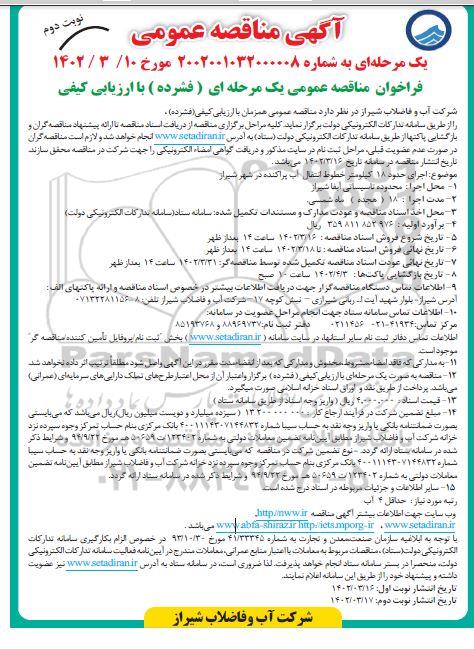 نوبت دوم
آگهی مناقصه عمومی
یک مرحله‌ای به شماره ۲۰۰۲۰۰۱۰۳۲۰۰۰۰۰۸ مورخ ۱۴۰۲ / ۳ / ۱۰
فراخوان مناقصه عمومی یک مرحله ای ( فشرده ) با ارزیابی کیفی
شرکت آب و فاضلاب شیراز در نظر دارد مناقصه عمومی همزمان با ارزیابی کیفی(فشرده) ،
را از طریق سامانه تدارکات الکترونیکی دولت برگزار نماید. کلیه مراحل برگزاری مناقصه از دریافت اسناد مناقصه تا ارائه پیشنهاد مناقصه‌گران و
بازگشایی پاکتها از طریق سامانه تدارکات الکترونیکی دولت (ستاد) به آدرس www.setadiran.ir انجام خواهد شد و لازم است مناقصه‌گران
در صورت عدم عضویت قبلی، مراحل ثبت نام در سایت مذکور و دریافت گواهی امضاء الکترونیکی را جهت شرکت در مناقصه محقق سازند.
تاریخ انتشار مناقصه در سامانه تاریخ ۱۴۰۲/۳/۱۶ می‌باشد.
موضوع: اجرای حدود ۱۸ کیلومتر خطوط انتقال آب پراکنده در شهر شیراز
۱- محل اجرا: محدوده تاسیساتی آبفا شیراز
۲- مدت اجرا : ۱۸ ( هجده ) ماه شمسی.
۳- محل اخذ اسناد مناقصه و عودت مدارک و مستندات تکمیل شده: سامانه ستاد(سامانه تدارکات الکترونیکی دولت)
۴- برآورد اولیه : ۹۷۶ ۸۵۲ ۸۱۱ ۳۵۹ ریال
۵- تاریخ شروع فروش اسناد مناقصه : ۱۴۰۲/۳/۱۶ ساعت ۱۴ بعداز ظهر
۶- تاریخ نهائی فروش اسناد مناقصه : تا ۱۴۰۲/۳/۱۸ ساعت ۱۴ بعداز ظهر
۷- تاریخ نهائی عودت اسناد مناقصه تکمیل شده توسط مناقصه‌گر: ۱۴۰۲/۳/۳۱ ساعت ۱۴ بعداز ظهر
۸- تاریخ بازگشایی پاکت‌ها: ۱۴۰۲/۴/۳ ساعت ۱۰ صبح
۹- اطلاعات تماس دستگاه مناقصه‌گزار جهت دریافت اطلاعات بیشتر در خصوص اسناد مناقصه و ارائه پاکتهای الف:
آدرس شیراز- بلوار شهید آیت ا... ربانی شیرازی – نبش کوچه ۱۷- شرکت آب و فاضلاب شیراز تلفن: ۸-۰۷۱۳۲۲۸۱۱۵۶
۱۰- اطلاعات تماس سامانه ستاد جهت انجام مراحل عضویت در سامانه:
مرکز تماس: ۴۱۹۳۴-۰۲۱ ۰۲۱۱۴۵۶ دفتر ثبت نام: ۸۸۹۶۹۷۳۷ و ۸۵۱۹۳۷۶۸
اطلاعات تماس دفاتر ثبت نام سایر استانها، در سایت سامانه ( www.setadiran.ir ) بخش "ثبت نام /پروفایل تأمین کننده/مناقصه گر"
موجود است.
۱۱- به مدارکی که فاقد امضا،مشروط،مخدوش و مدارکی که بعد از انقضا مدت مقرر در این آگهی واصل شود مطلقاً ترتیب اثر داده نخواهد شد.
۱۲- مناقصه به صورت یک مرحله‌ای با ارزیابی کیفی ( فشرده ) برگزار و اعتبار آن از محل اعتبار طرح‌های تملک دارایی‌های سرمایه‌ای (عمرانی)
می‌باشد. پرداخت از طریق نقد و اوراق اسناد خزانه اسلامی صورت میگیرد.
۱۳- قیمت اسناد: ۴،۰۰۰،۰۰۰ ریال (واریز وجه اسناد از طریق سامانه ستاد)
۱۴- مبلغ تضمین شرکت در فرآیند ارجاع کار ۱۳۲۰۰۰۰۰۰۰۰ ( سیزده میلیارد و دویست میلیون ریال)ریال می‌باشد که می‌بایستی
بصورت ضمانتنامه بانکی یا واریز وجه نقد به حساب سیبا شماره ۴۰۰۱۱۱۴۳۰۷۱۴۴۸۳۲ بانک مرکزی بنام حساب تمرکز وجوه سپرده نزد
خزانه شرکت آب و فاضلاب شیراز مطابق آیین‌نامه تضمین معاملات دولتی به شماره ۱۲۳۴۰۲/ت ۵۰۶۵۹ هـ مورخ ۹۴/۹/۲۲ و شرایط ذکر
شده در سامانه ستاد ارائه گردد. - نوع تضمین شرکت در مناقصه که می‌بایستی بصورت ضمانتنامه بانکی یا واریز وجه نقد به حساب سیبا
شماره ۴۰۰۱۱۱۴۳۰۷۱۴۴۸۳۲ بانک مرکزی بنام حساب تمرکز وجوه سپرده نزد خزانه شرکت آب و فاضلاب شیراز مطابق آیین‌نامه تضمین
معاملات دولتی به شماره ۱۲۳۴۰۲/ت ۵۰۶۵۹ هـ مورخ ۹۴/۹/۲۲ و شرایط ذکر شده در سامانه ستاد ارائه گردد.
۱۵- سایر اطلاعات و جزئیات مربوطه در اسناد درج شده است.
رتبه مورد نیاز : حداقل ۴ آب
وب سایت جهت اطلاعات بیشتر آگهی مناقصه http://www.ir،
www.setadiran.ir ، www.abfa-shiraz.ir http://iets.mporg-ir می‌باشد.
با توجه به ابلاغیه سازمان صنعت،معدن و تجارت به شماره ۴۱/۳۳۳۴۵ مورخ ۹۳/۱۰/۳۰ در خصوص الزام بکارگیری سامانه تدارکات
الکترونیکی دولت(ستاد)، مناقصات مربوط به معاملات با اعتبار منابع عمرانی، معاملات مندرج در آیین‌نامه فعالیت سامانه تدارکات الکترونیکی
دولت، منحصرا در بستر سامانه ستاد انجام خواهد پذیرفت. لذا ضروری است، در سامانه ستاد به آدرس www.setadiran.ir نیز عضویت
داشته و پیشنهاد خود را از طریق این سامانه اعلام نمایند.
تاریخ انتشار نوبت اول: ۱۴۰۲/۰۳/۱۶
تاریخ انتشار نوبت دوم: ۱۴۰۲/۰۳/۱۷
شرکت آب وفاضلاب شیراز